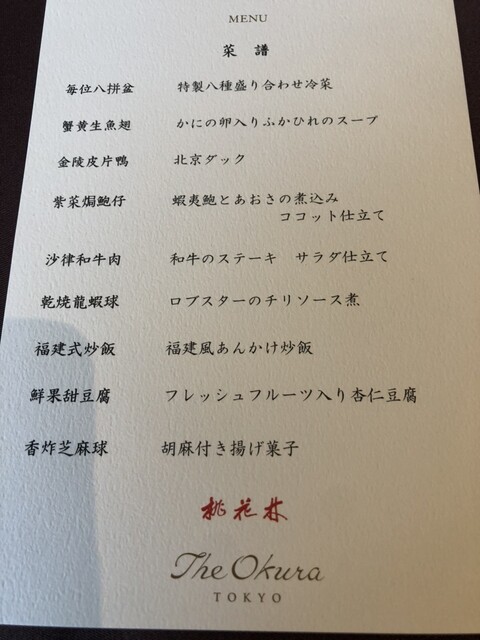 MENU
菜 譜
毎位八拼盆 特製八種盛り合わせ冷菜
蟹黄生魚翅 かにの卵入りふかひれのスープ
金陵皮片鴨 北京ダック
紫菜焗鮑仔 蝦夷鮑とあおさの煮込み
ココット仕立て
沙律和牛肉 和牛のステーキ サラダ仕立て
乾焼龍蝦球 ロブスターのチリソース煮
福建式炒飯 福建風あんかけ炒飯
鮮果甜豆腐 フレッシュフルーツ入り杏仁豆腐
香炸芝麻球 胡麻付き揚げ菓子
桃花林
The Okura
TOKYO